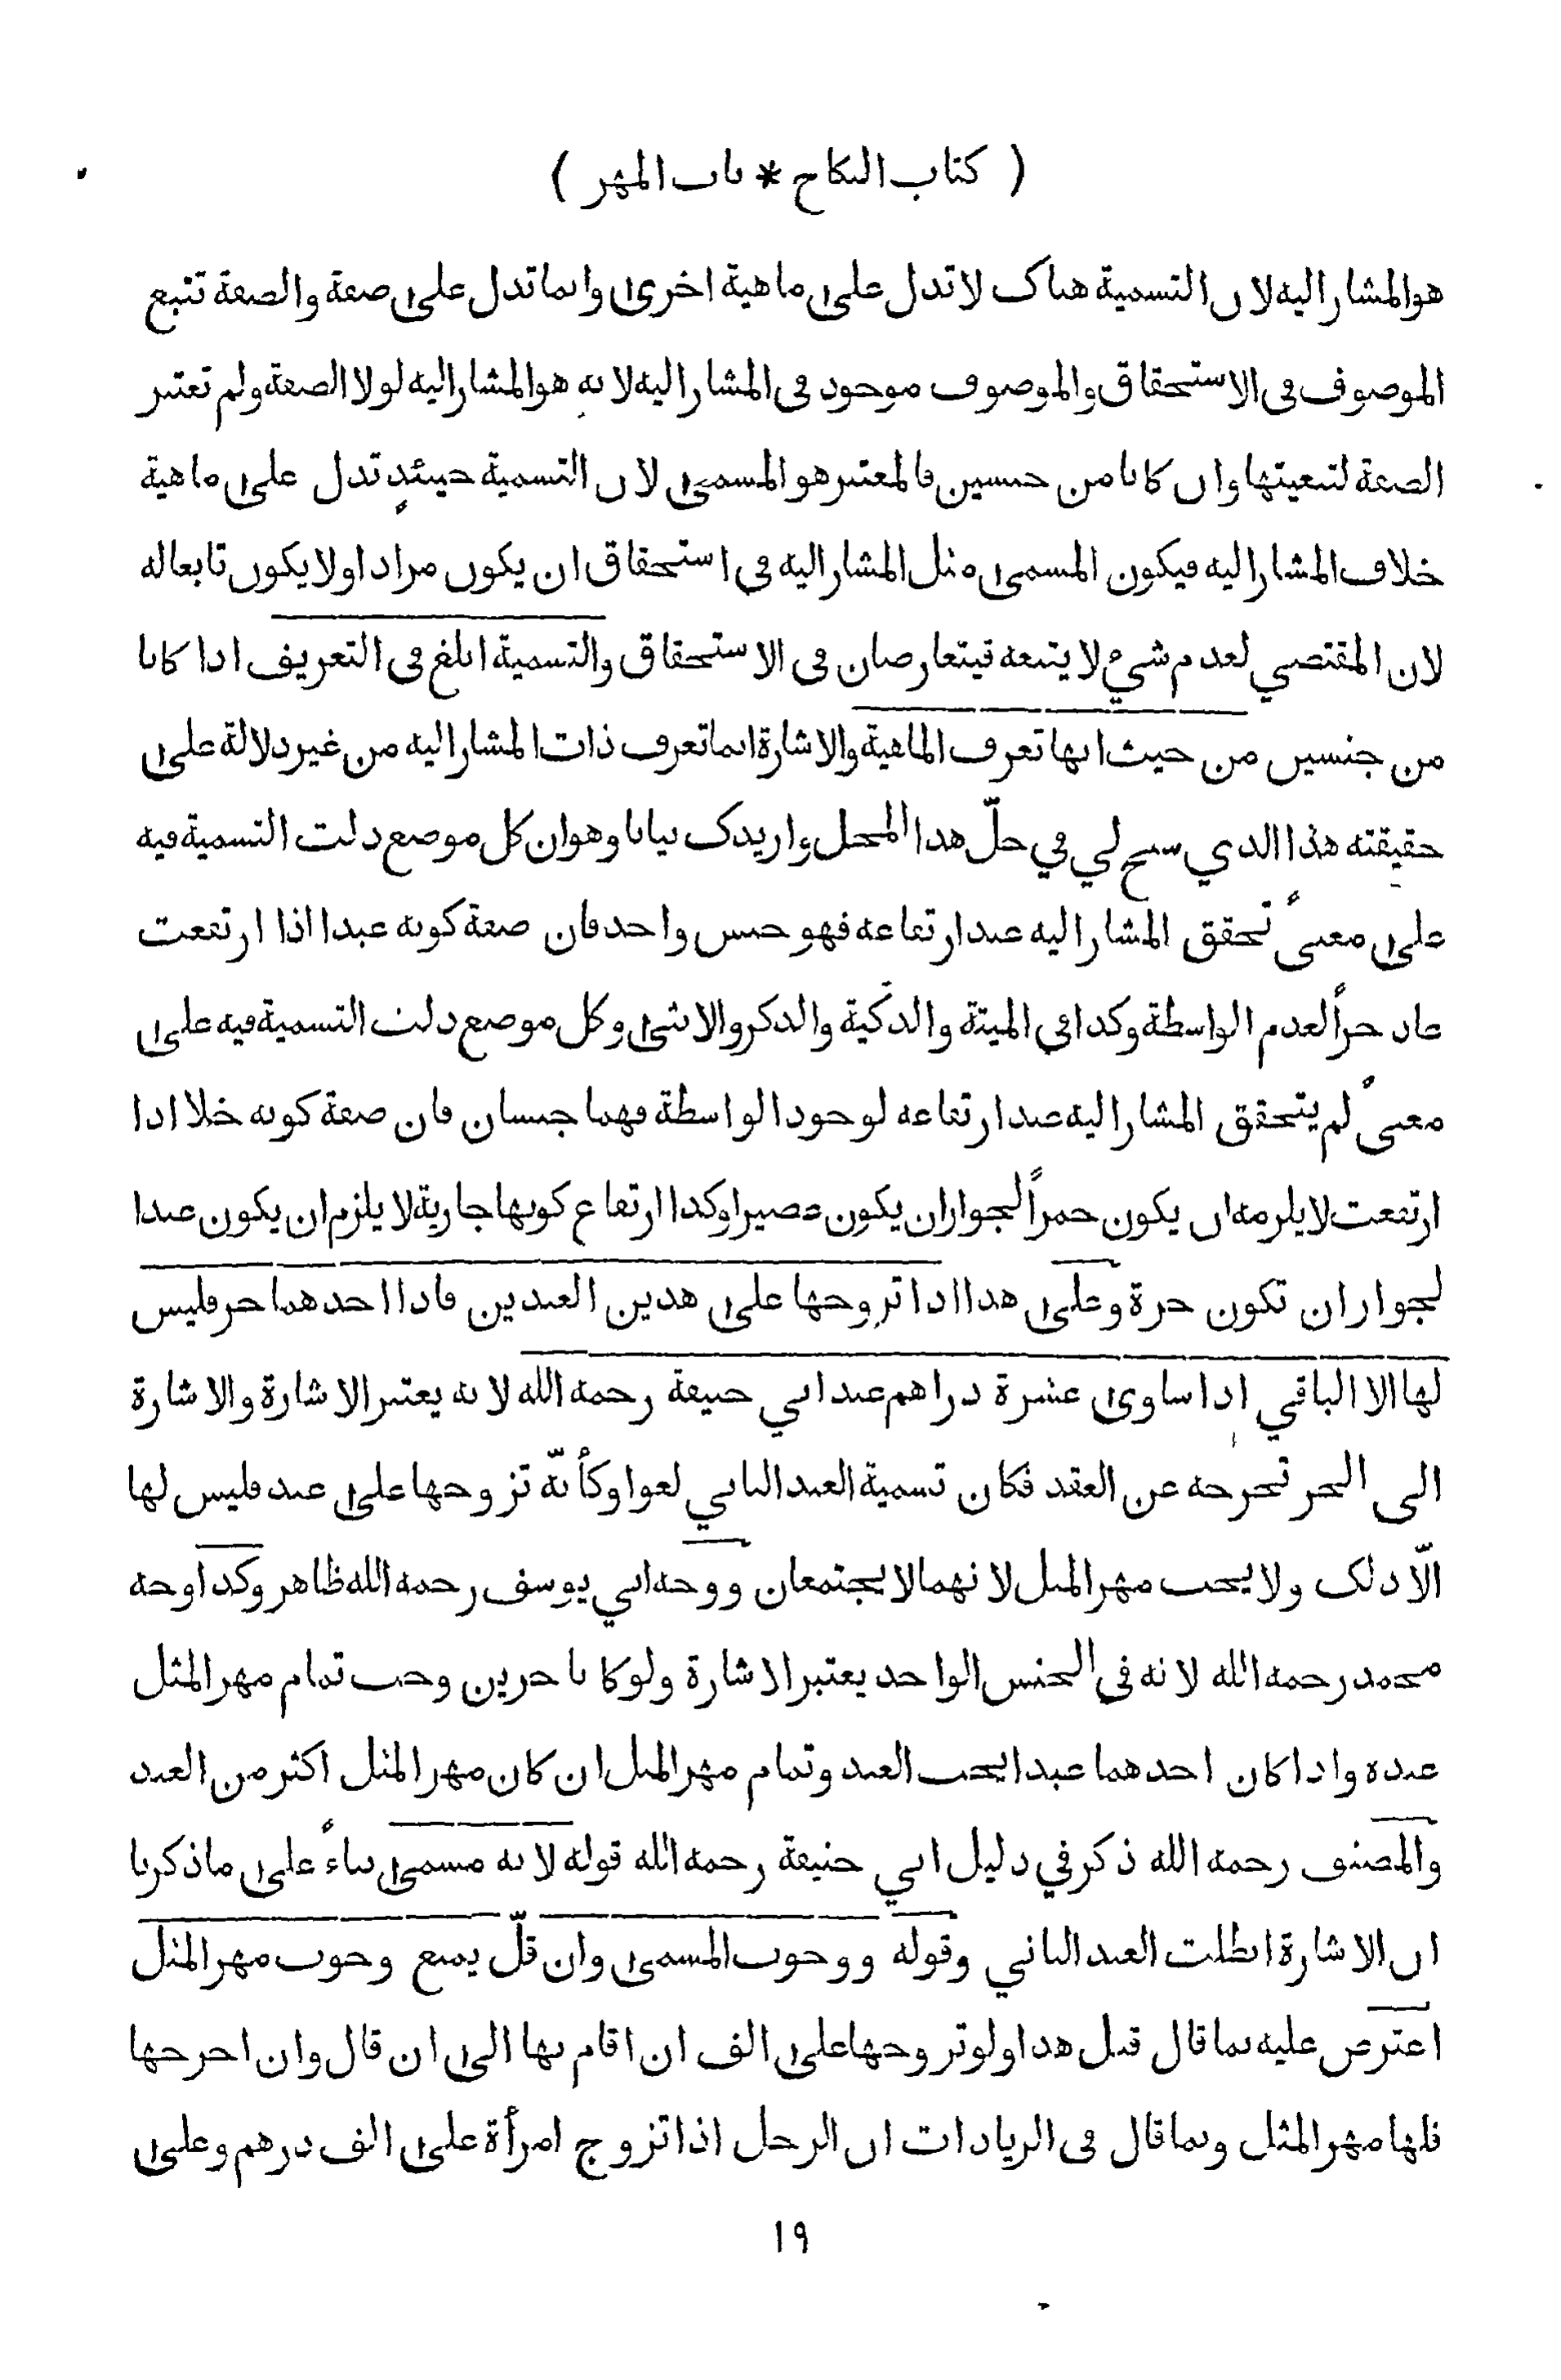 ( كتاب النكاح * باب المهر )
هو المشار اليه لان التسمية هناك لا تدل على ماهية اخرى وانما تدل على صفة والصفة تتبع
الموصوف في الاستحقاق والموصوف موجود في المشار اليه لانه هو المشار اليه لولا الصفة ولم تعتبر
الصفة لتبعيتها وان كانا من جنسين فالمعتبر هو المسمى لان التسمية حينئذٍ تدل على ماهية
خلاف المشار اليه فيكون المسمى مثل المشار اليه في استحقاق ان يكون مرادا ولا يكون تابعاله
لان المقتضي لعدم شيء لا يتبعه فيتعارضان في الاستحقاق والتسمية ابلغ في التعريف اذا كانا
من جنسين من حيث انها تعرف الماهية والاشارة انما تعرف ذات المشار اليه من غير دلالة على
حقيقته هذا الذي سنح لي في حلّ هذا المحل وازيدك بيانا وهو ان كل موضع دلت التسمية فيه
على معنىً تحقق المشار اليه عند ارتفاعه فهو جنس واحد فان صفة كونه عبدا اذا ارتفعت
عاد حراً لعدم الواسطة وكذا في الميتة والذكية والذكر والانثى وكل موضع دلت التسمية فيه على
معنىً لم يتحقق المشار اليه عند ارتفاعه لوجود الواسطة فهما جنسان فان صفة كونه خلا اذا
ارتفعت لا يلزمه ان يكون خمراً لجواز ان يكون عصيرا وكذا ارتفاع كونها جارية لا يلزم ان يكون عبدا
لجواز ان تكون حرة وعلى هذا اذا تزوجها على هذين العبدين فاذا احدهما حر فليس
لها الا الباقي اذا ساوى عشرة دراهم عند ابي حنيفة رحمه الله لانه يعتبر الاشارة والاشارة
الى الحر تخرجه عن العقد فكان تسمية العبد الثاني لغوا وكأنّه تزوجها على عبد فليس لها
الّا ذلك ولا يجب مهر المثل لانهما لا يجتمعان ووجه ابي يوسف رحمه الله ظاهر وكذا وجه
محمد رحمه الله لانه في الجنس الواحد يعتبر الاشارة ولو كانا حرين وجب تمام مهر المثل
عنده واذا كان احدهما عبدا يجب العبد وتمام مهر المثل ان كان مهر المثل اكثر من العبد
والمصنف رحمه الله ذكر في دليل ابي حنيفة رحمه الله قوله لانه مسمى بناءً على ما ذكرنا
ان الاشارة ابطلت العبد الثاني وقوله ووجوب المسمى وان قلّ يمنع وجوب مهر المثل
اعترض عليه بما قال قبل هذا ولو تزوجها على الف ان اقام بها الى ان قال وان اخرجها
فلها مهر المثل وبما قال في الزيادات ان الرجل اذا تزوج امرأة على الف درهم وعلى
١٩